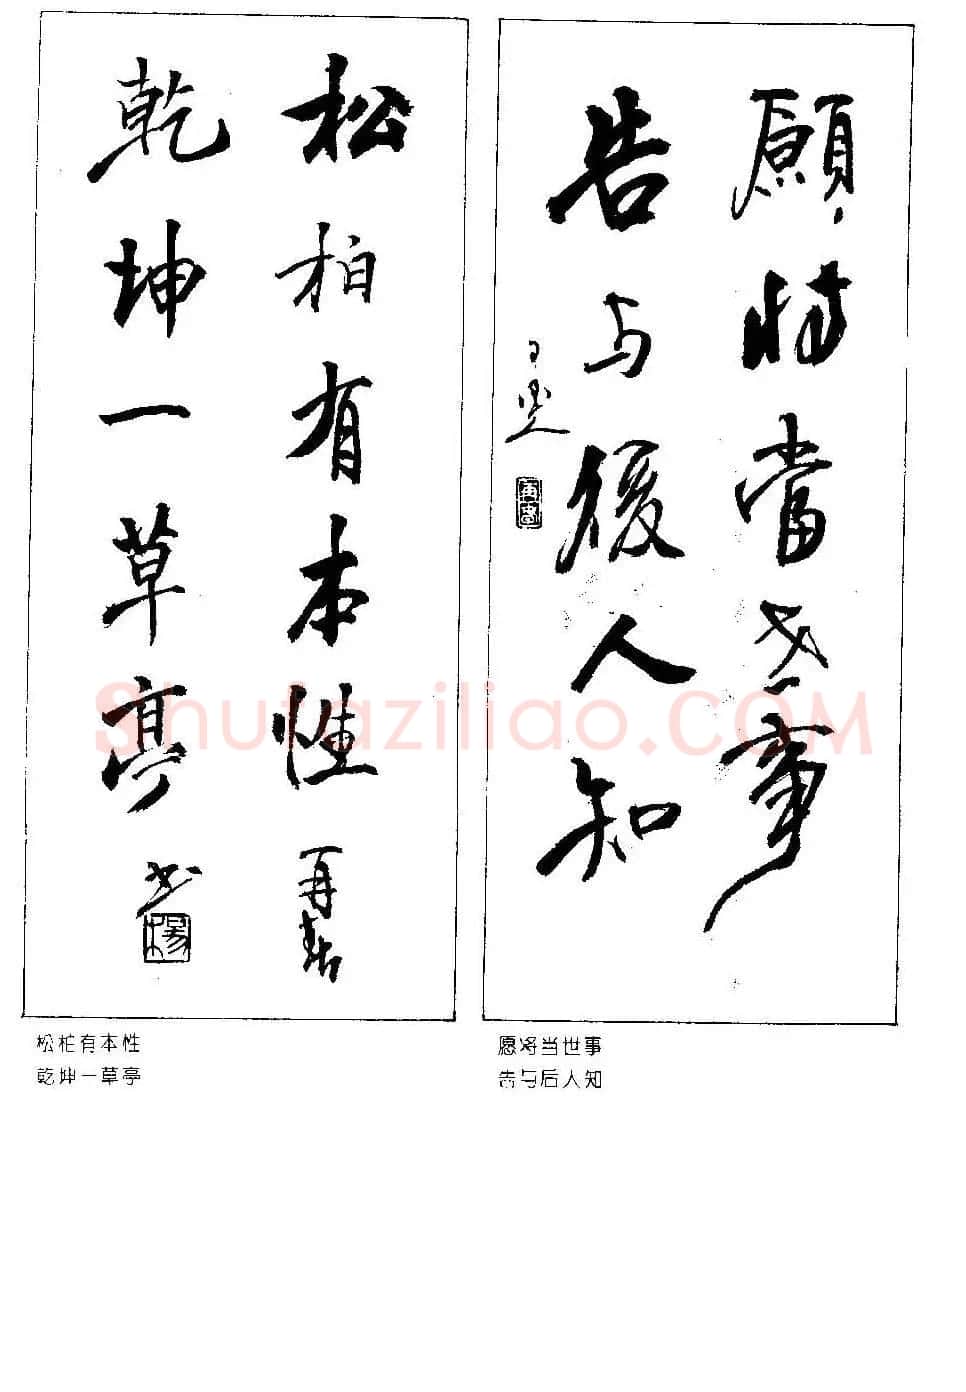 願將當世事
告与後人知
松柏有本性
乾坤一草亭
书
楊
松柏有本性
乾坤一草亭
愿将当世事
告与后人知
Shufaziliao.COM